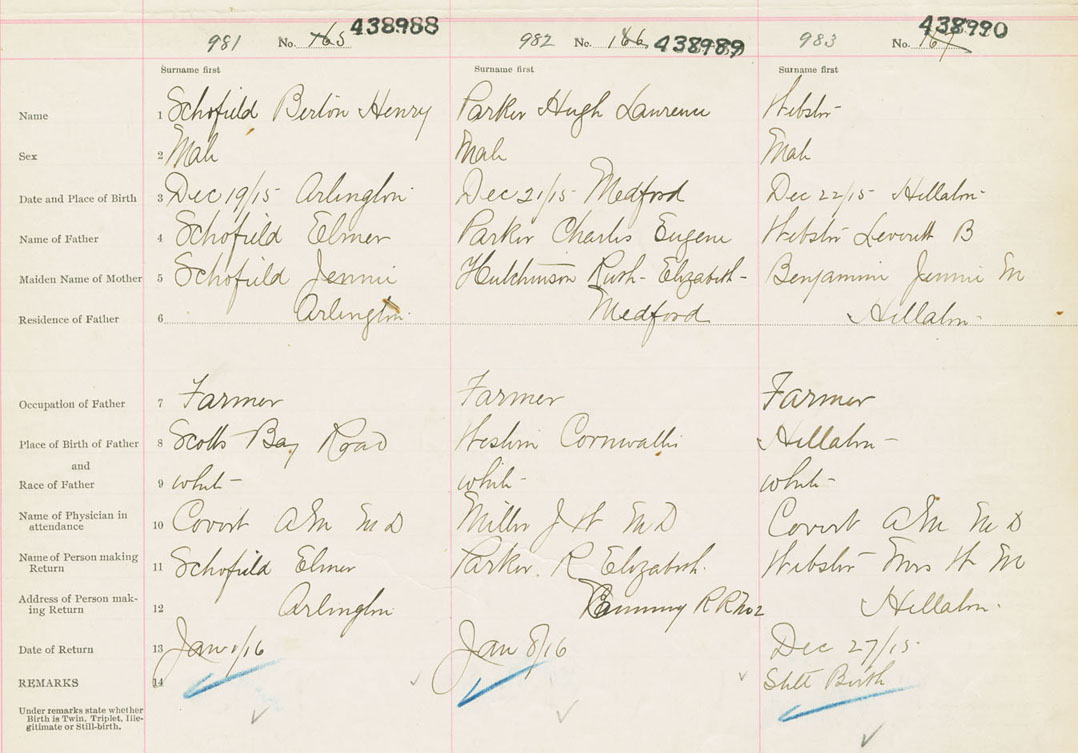 981 No. 165 438988 982 No. 166 438989 983 No. 167 438990
Surname first Surname first Surname first
Name 1 Schofield Berton Henry Parker Hugh Laurence Webster
Sex 2 Male Male Male
Date and Place of Birth 3 Dec 19/15 Arlington Dec 21/15 Medford Dec 22/15 Hillaton
Name of Father 4 Schofield Elmer Parker Charles Eugene Webster Leverett B
Maiden Name of Mother 5 Schofield Jennie Hutchinson Ruth Elizabeth Benjamin Jennie M
Residence of Father 6 Arlington Medford Hillaton
Occupation of Father 7 Farmer Farmer Farmer
Place of Birth of Father 8 Scotts Bay Road Western Cornwallis Hillaton
and
Race of Father 9 white white white
Name of Physician in
attendance 10 Covert A M M D Miller J W M D Covert A M M D
Name of Person making
Return 11 Schofield Elmer Parker R Elizabeth Webster Mrs W M
Address of Person mak-
ing Return 12 Arlington Canning R R No 2 Hillaton
Date of Return 13 Jan 1/16 Jan 8/16 Dec 27/15
REMARKS 14 Still Birth
Under remarks state whether
Birth is Twin, Triplet, Ille-
gitimate or Still-birth.